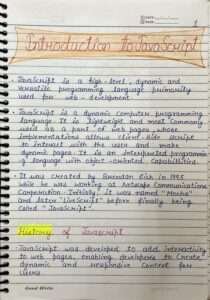 Introduction to JavaScript
JavaScript is a high-level, dynamic and
versatile programming language primarily
used for web-development.
JavaScript is a dynamic computer programming
language. It is lightweight and most commonly
used as a part of web pages, whose
implementations allows client-side script
to interact with the user and make
dynamic pages. It is an interpreted programmin
g language with object-oriented capabilities.
It was created by Brendan Eich in 1995
while he was working at Netscape Communications
Corporation. Initially, it was named "Mocha"
and later "LiveScript" before finally being
called "JavaScript".
History of Javascript
JavaScript was developed to add interactivity
to web pages, enabling developers to create
dynamic and responsive content for
users
Good Write